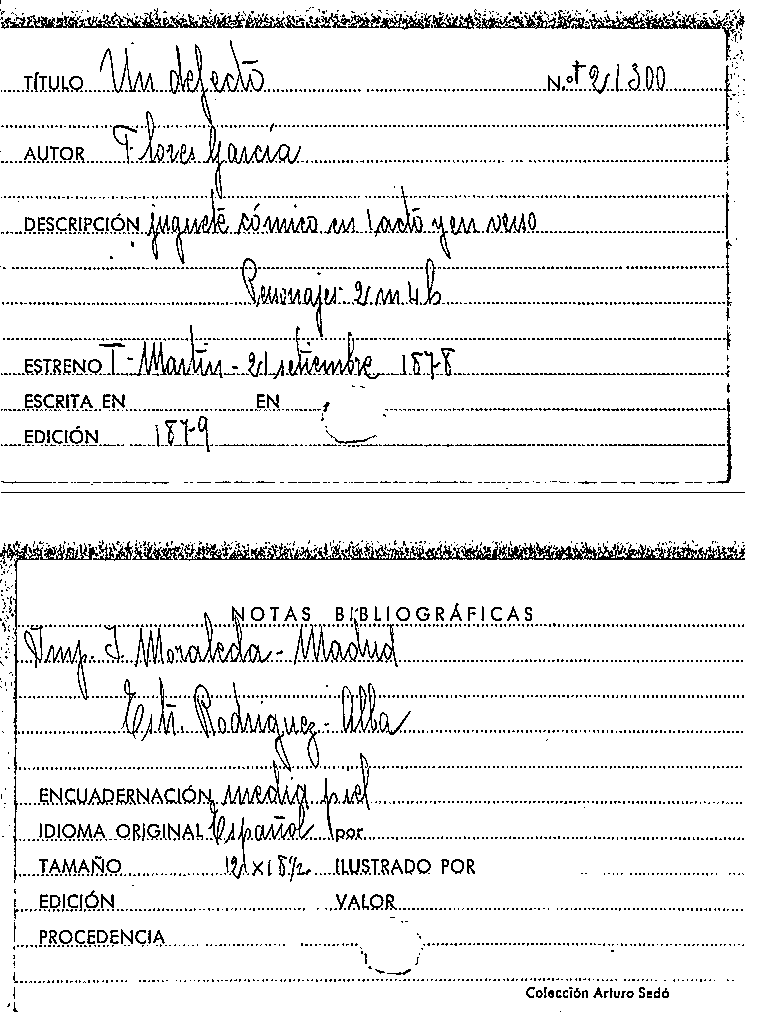 TÍTULO Un defecto N.º T 21300
AUTOR Flores García
DESCRIPCIÓN juguete cómico en 1 acto y en verso
Personajes 2 m 4 h
ESTRENO T- Martín - 21 setiembre 1878
ESCRITA EN EN
EDICIÓN 1879
NOTAS BIBLIOGRÁFICAS
Imp. J. Moraleda - Madrid
Estr. Rodriguez - Alba
ENCUADERNACIÓN media piel
IDIOMA ORIGINAL Español por
TAMAÑO 12 x 18½ ILUSTRADO POR
EDICIÓN VALOR
PROCEDENCIA
Colección Arturo Sedó